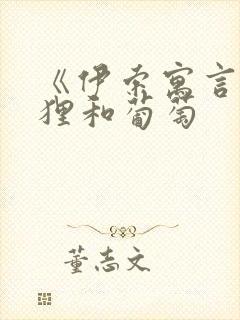 《伊索寓言
狸和葡萄
董志文